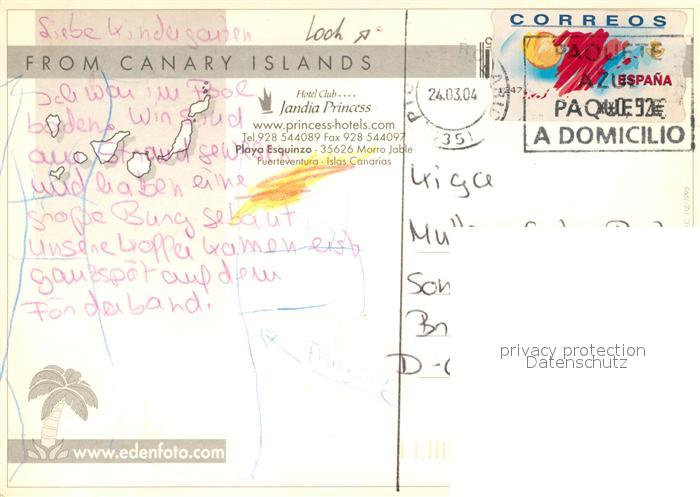 Liebe Kindergarten
Loch
FROM CANARY ISLANDS
Ich war im Pool
baden. Wir sind
am Strand
und haben eine
große Burg gebaut
unsere Koffer kamen erst
ganz spät auf dem
Förderband.
www.edenfoto.com
Hotel Club ....
Jandia Princess
www.princess-hotels.com
Tel.928 544089 Fax 928 544097
Playa Esquinzo - 35626 Morro Jable
Fuerteventura - Islas Canarias
CORREOS
ESPAÑA
24.03.04
35
PAQUETE
AZUL
PAQUETE
A DOMICILIO
Mu
Son
Br
D-
privacy protection
Datenschutz